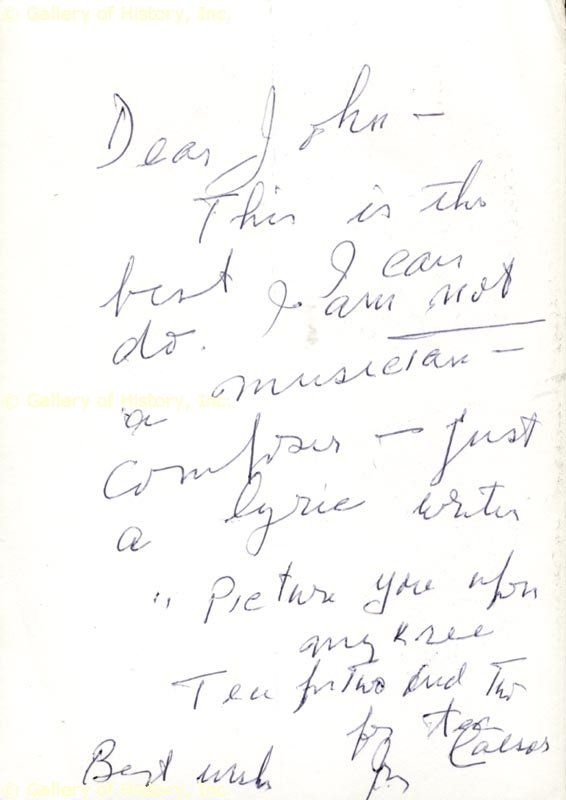 © Gallery of History, Inc.
Dear John –
This is the
best I can
do. I am not
a musician –
© Gallery of History, Inc.
composer – just
a lyric writer
" Picture you upon
my knee
Tea for Two and Two
for tea
Best wish Caesar
© Gallery of History, Inc.